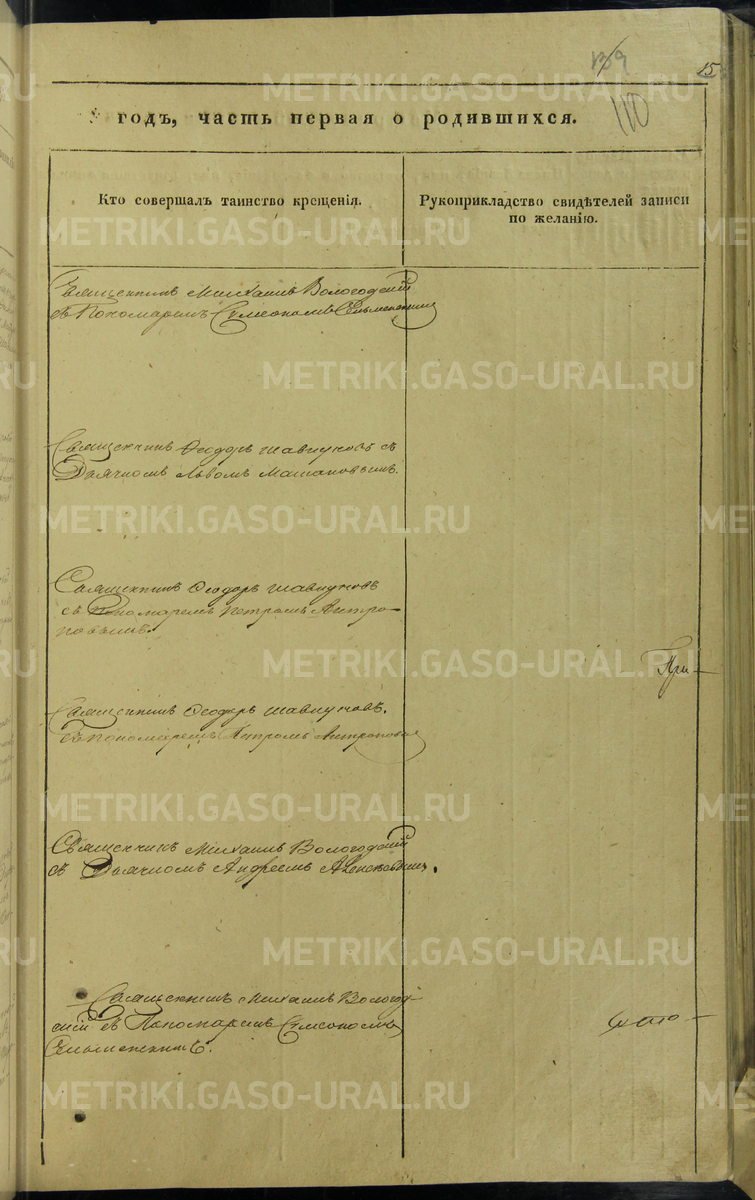 139
15
110
годъ, часть первая о родившихся.
Кто совершалъ таинство крещенія.
Рукоприкладство свидѣтелей записи
по желанію.
Священникъ Михаилъ Вологодскій
съ Пономаремъ Симеономъ
Священникъ Ѳеодоръ Шавкуновъ съ
Дьячкомъ Львомъ
Священникъ Ѳеодоръ Шавкуновъ
съ Пономаремъ Петромъ Антро-
повымъ.
При-
Священникъ Ѳеодоръ Шавкуновъ.
съ Пономаремъ Петромъ Антроповым
Священникъ Михаилъ Вологодскій
съ Дьячкомъ Андреемъ
Священникъ Михаилъ Вологод-
скій съ Пономаремъ Симеономъ
METRIKI.GASO-URAL.RU